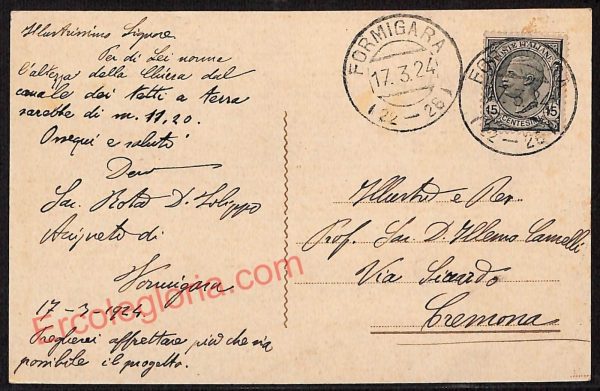 Illustrissimo Signore
Per di Lei norma
l'altezza della Chiesa dal
canale dei tetti a terra
sarebbe di m. 11,20.
Ossequi e saluti
Dev
Sac. Rota D. Filippo
di
Formigara
17-3-1924
affrettare più che sia
possibile il progetto.
FORMIGARA
17.3.24
(22-26)
FOR
22-26
POSTE ITALIANE
15 15
CENTESIMI
Illustre e Rev
Prof. Sac. D. Illemo Camelli
Via Sicardo
Cremona
Ercolegloria.com